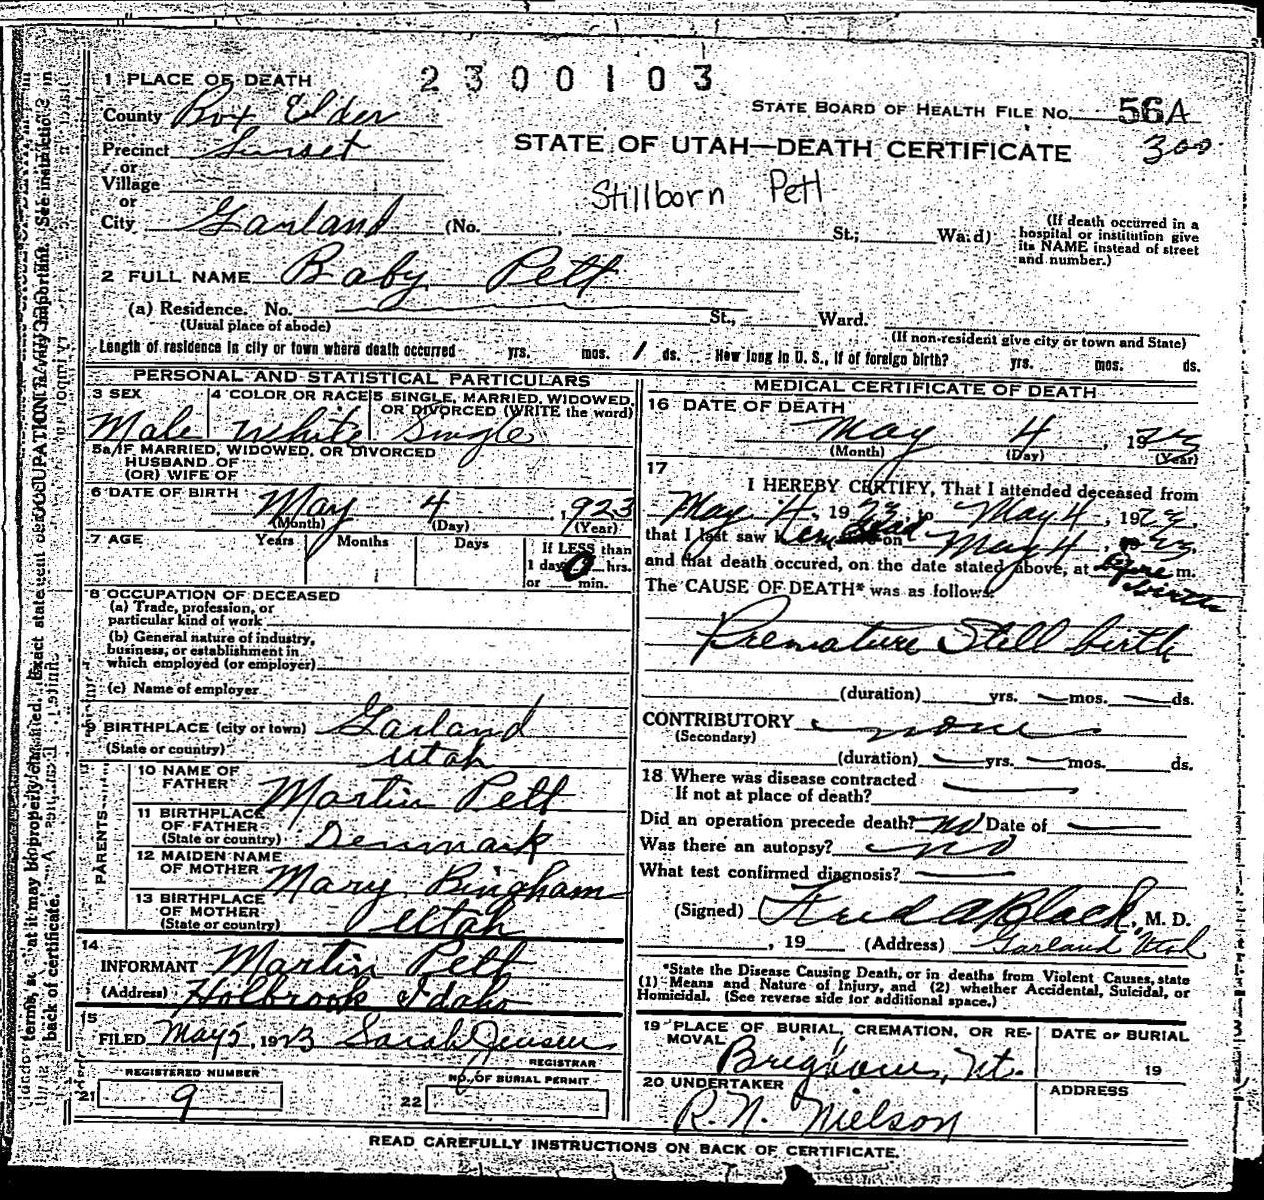 2300103
1 PLACE OF DEATH
County Box Elder
STATE BOARD OF HEALTH FILE No. 56A
Precinct Sunset
STATE OF UTAH—DEATH CERTIFICATE 300
or
Village
Stillborn Pett
or
City Garland (No. St.; Ward)
(If death occurred in a hospital or institution give its NAME instead of street and number.)
2 FULL NAME Baby Pett
(a) Residence. No. St., Ward.
(Usual place of abode) (If non-resident give city or town and State)
Length of residence in city or town where death occurred yrs. mos. 1 ds. How long in U. S., if of foreign birth? yrs. mos. ds.
PERSONAL AND STATISTICAL PARTICULARS
3 SEX 4 COLOR OR RACE 5 SINGLE, MARRIED, WIDOWED,
OR DIVORCED (WRITE the word)
Male White Single
5a IF MARRIED, WIDOWED, OR DIVORCED
HUSBAND OF
(OR) WIFE OF
6 DATE OF BIRTH May 4, 1923
(Month) (Day) (Year)
7 AGE Years Months Days If LESS than
1 day 0 hrs.
or min.
8 OCCUPATION OF DECEASED
(a) Trade, profession, or
particular kind of work
(b) General nature of industry,
business, or establishment in
which employed (or employer)
(c) Name of employer
9 BIRTHPLACE (city or town) Garland
(State or country) Utah
PARENTS
10 NAME OF
FATHER Martin Pett
11 BIRTHPLACE
OF FATHER
(State or country) Denmark
12 MAIDEN NAME
OF MOTHER Mary Bingham
13 BIRTHPLACE
OF MOTHER
(State or country) Utah
14
INFORMANT Martin Pett
(Address) Holbrook Idaho
15
FILED May 5, 1923 Sarah Jensen
REGISTRAR
REGISTERED NUMBER NO. OF BURIAL PERMIT
21 9 22
MEDICAL CERTIFICATE OF DEATH
16 DATE OF DEATH
May 4, 1923
(Month) (Day) (Year)
17
I HEREBY CERTIFY, That I attended deceased from
May 4, 1923, to May 4, 1923,
that I last saw on May 4, 23
and that death occured, on the date stated above, at before m.
birth
The CAUSE OF DEATH* was as follows:
Premature Still birth
(duration) yrs. mos. ds.
CONTRIBUTORY none
(Secondary)
(duration) yrs. mos. ds.
18 Where was disease contracted
If not at place of death?
Did an operation precede death? no Date of
Was there an autopsy? no
What test confirmed diagnosis?
(Signed) Fred A Black, M. D.
, 19 (Address) Garland Utah
*State the Disease Causing Death, or in deaths from Violent Causes, state
(1) Means and Nature of Injury, and (2) whether Accidental, Suicidal, or
Homicidal. (See reverse side for additional space.)
19 PLACE OF BURIAL, CREMATION, OR RE- DATE OF BURIAL
MOVAL Brigham, Ut. 19
20 UNDERTAKER ADDRESS
R. N. Nielson
READ CAREFULLY INSTRUCTIONS ON BACK OF CERTIFICATE.